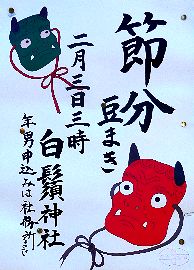 節分
豆まき
二月三日三時
白鬚神社
年男申込みは社務所まで